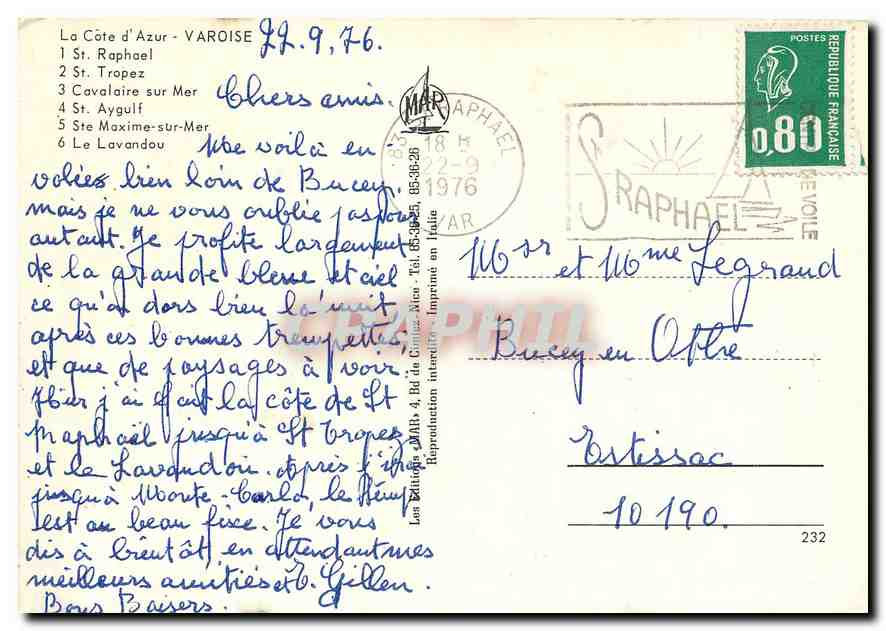 La Côte d'Azur - VAROISE
1 St. Raphael
2 St. Tropez
3 Cavalaire sur Mer
4 St. Aygulf
5 Ste Maxime-sur-Mer
6 Le Lavandou
22.9.76.
Chers amis.
Me voilà en
volées bien loin de Bucey.
mais je ne vous oublie pas pour
autant. Je profite largement
de la grande bleue et ciel
ce qu'on dors bien la nuit
après ces bonnes trempettes,
et que de paysages à voir.
Hier j'ai fait la côte de St
Raphaël jusqu'à St Tropez
et le Lavandou. Après j'irai
jusqu'à Monte-Carlo, le temps
est au beau fixe. Je vous
dis à bientôt, en attendant mes
meilleurs amitiés et E. Gillen.
Bons Baisers.
MAR
Les Editions «MAR» 4, Bd de Cimiez - Nice - Tél. 85-36-25, 85-36-26
Reproduction interdite - Imprimé en Italie
83 RAPHAEL
18 H
22-9
1976
VAR
ST RAPHAEL
DE VOILE
POSTES
REPUBLIQUE FRANÇAISE
0,80
Msr et Mme Legrand
Bucey en Othe
Estissac
10190.
232
CPAPHIL